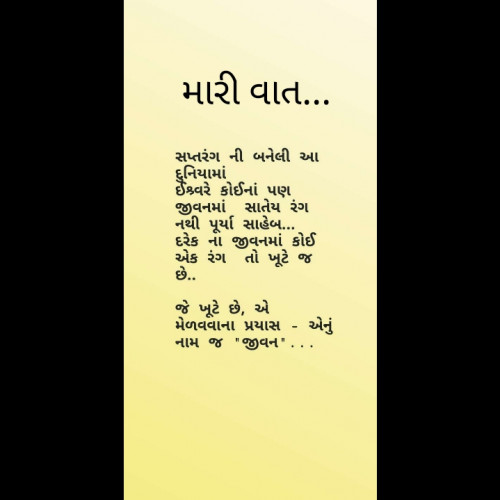 મારી વાત...
સપ્તરંગ ની બનેલી આ
દુનિયામાં
ઈશ્વરે કોઈનાં પણ
જીવનમાં સાતેય રંગ
નથી પૂર્યા સાહેબ...
દરેક ના જીવનમાં કોઈ
એક રંગ તો ખૂટે જ
છે..
જે ખૂટે છે, એ
મેળવવાના પ્રયાસ - એનું
નામ જ "જીવન"...